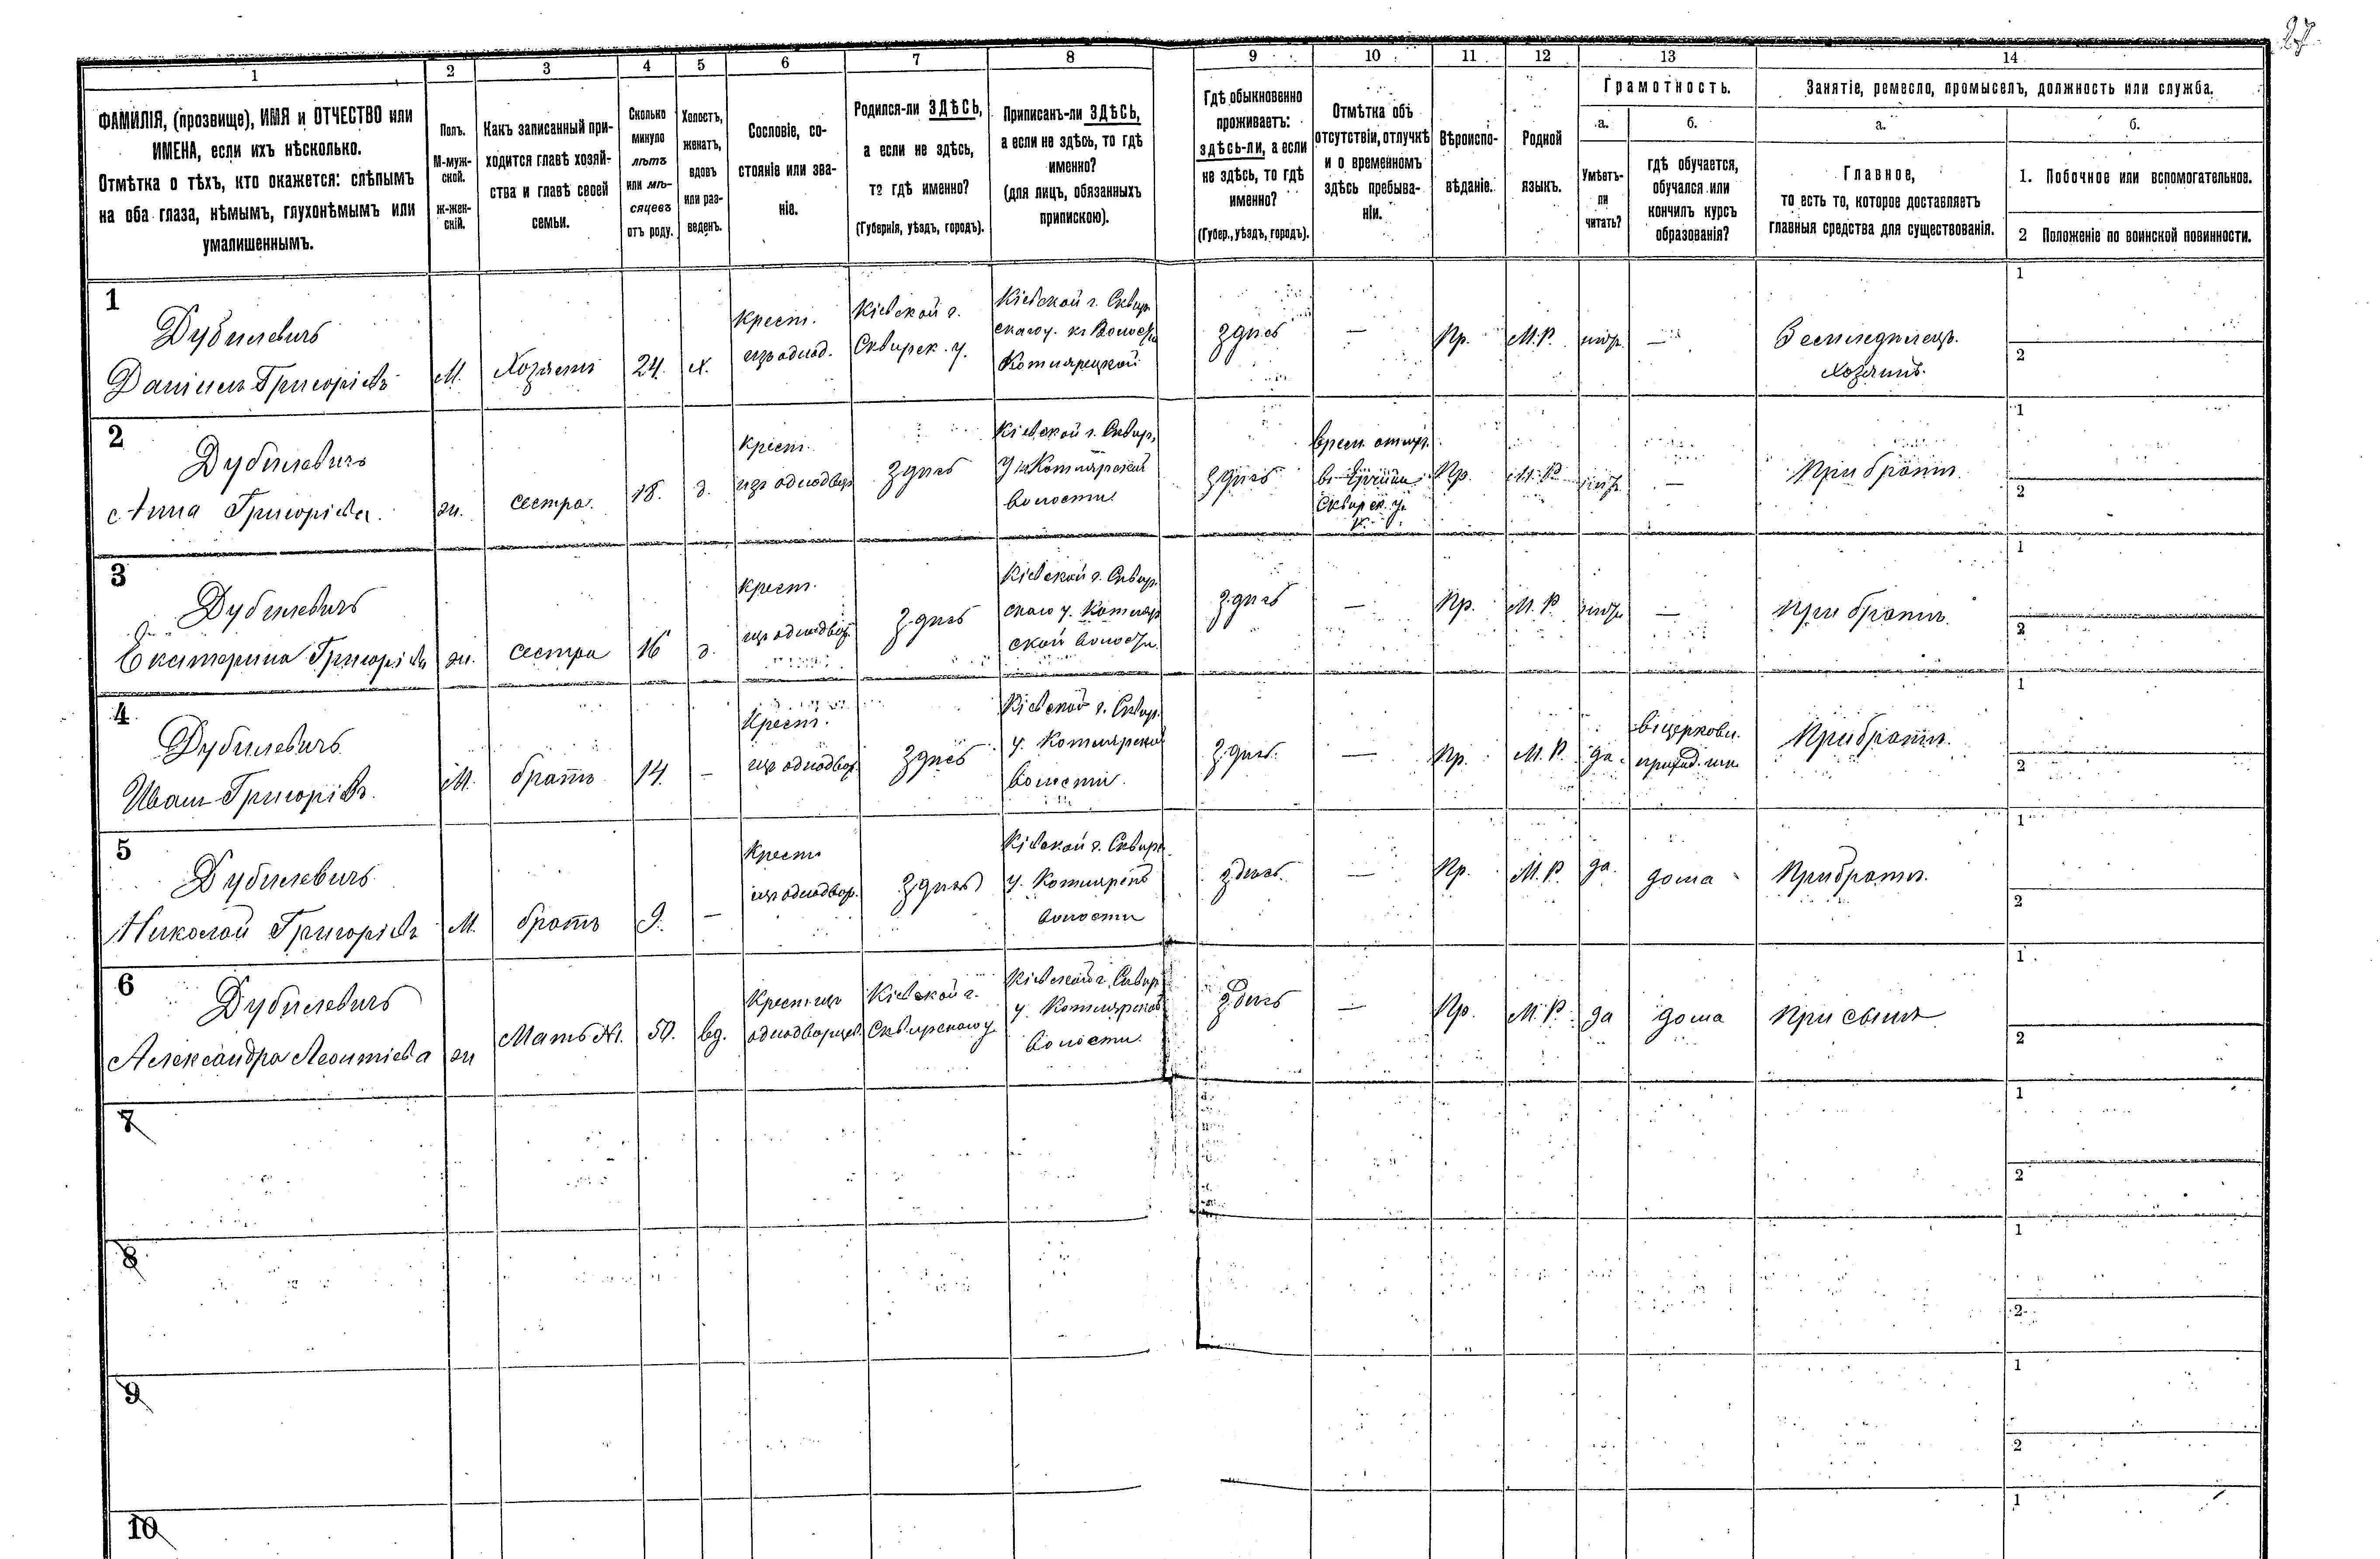 27
1 2 3 4 5 6 7 8 9 10 11 12 13 14
ФАМИЛІЯ, (прозвище), ИМЯ и ОТЧЕСТВО или
ИМЕНА, если ихъ нѣсколько.
Отмѣтка о тѣхъ, кто окажется: слѣпымъ
на оба глаза, нѣмымъ, глухонѣмымъ или
умалишеннымъ.
Полъ.
М-муж-
ской.
ж-жен-
скій.
Какъ записанный при-
ходится главѣ хозяй-
ства и главѣ своей
семьи.
Сколько
минуло
лѣтъ
или мѣ-
сяцевъ
отъ роду.
Холостъ,
женатъ,
вдовъ
или раз-
веденъ.
Сословіе, со-
стояніе или зва-
ніе.
Родился-ли ЗДѢСЬ,
а если не здѣсь,
то гдѣ именно?
(Губернія, уѣздъ, городъ).
Приписанъ-ли ЗДѢСЬ,
а если не здѣсь, то гдѣ
именно?
(для лицъ, обязанныхъ
припискою).
Гдѣ обыкновенно
проживаетъ:
здѣсь-ли, а если
не здѣсь, то гдѣ
именно?
(Губер., уѣздъ, городъ).
Отмѣтка объ
отсутствіи, отлучкѣ
и о временномъ
здѣсь пребыва-
ніи.
Вѣроиспо-
вѣданіе.
Родной
языкъ.
Грамотность.
а.
Умѣетъ-
ли
читать?
б.
гдѣ обучается,
обучался или
кончилъ курсъ
образованія?
Занятіе, ремесло, промыселъ, должность или служба.
а.
Главное,
то есть то, которое доставляетъ
главныя средства для существованія.
б.
1. Побочное или вспомогательное.
2 Положеніе по воинской повинности.
1
Дубилевичъ
Даніилъ Григоріевъ
М.
Хозяинъ
24.
х.
Крест.
изъ однод.
Кіевской г.
Сквирск. у.
Кіевской г. Сквир
скаго у. къ Волости
Котлярецкой
здѣсь
—
Пр.
М.Р.
нѣтъ
—
Земледѣлецъ.
хозяинъ.
1
2
2
Дубилевичъ
Анна Григоріева.
ж.
сестра.
18.
д.
Крест.
изъ однодвор
здѣсь
Кіевской г. Сквир.
у. Котлярской
волости
здѣсь
Сквирск. у.
Пр.
М.Р.
нѣтъ
—
При братѣ
1
2
3
Дубилевичъ
Екатерина Григоріева
ж.
сестра
16
д.
Крест.
изъ однодвор.
здѣсь
Кіевской г. Сквир.
скаго у. Котляр
ской волости
здѣсь
—
Пр.
М.Р.
нѣтъ
—
При братѣ.
1
2
4
Дубилевичъ
Иванъ Григоріевъ.
М.
братъ
14.
—
Крест.
изъ однодвор.
здѣсь
Кіевской г. Сквир.
у. Котлярской
волости.
здѣсь.
—
Пр.
М.Р.
да.
въ церковн.
приход. шк
При братѣ.
1
2
5
Дубилевичъ
Николай Григоріевъ
М.
братъ
9.
—
Крест.
изъ однодвор.
здѣсь
Кіевской г. Сквир.
у. Котлярской
волости
здѣсь.
—
Пр.
М.Р.
да.
дома
При братѣ.
1
2
6
Дубилевичъ
Александра Леонтіева
ж
Мать №1.
50.
вд.
Крест. изъ
однодворцев.
Кіевской г.
Сквирскаго у
Кіевской г. Сквир
у. Котлярской
волости.
здѣсь
—
Пр.
М.Р.
да
дома
При сынѣ
1
2
7
1
2
8
1
2
9
1
2
10
1